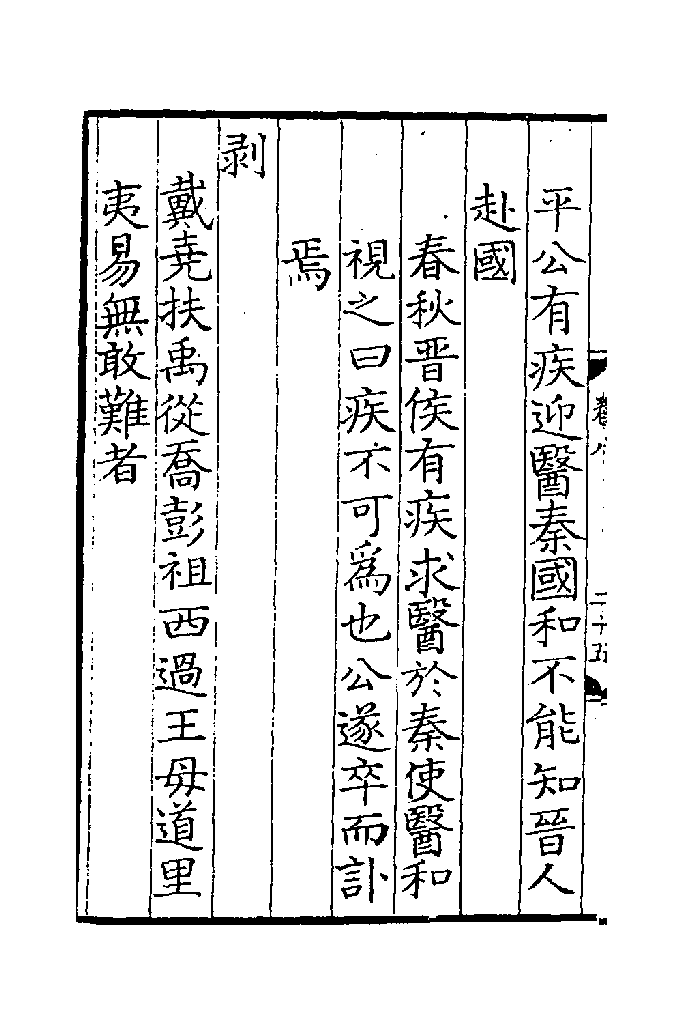 平公有疾迎醫秦國和不能知晉人
赴國
春秋晋侯有疾求醫於秦使醫和
視之曰疾不可爲也公遂卒而訃
焉
剥
戴堯扶禹從喬彭祖西過王母道里
夷易無敢難者
二十五